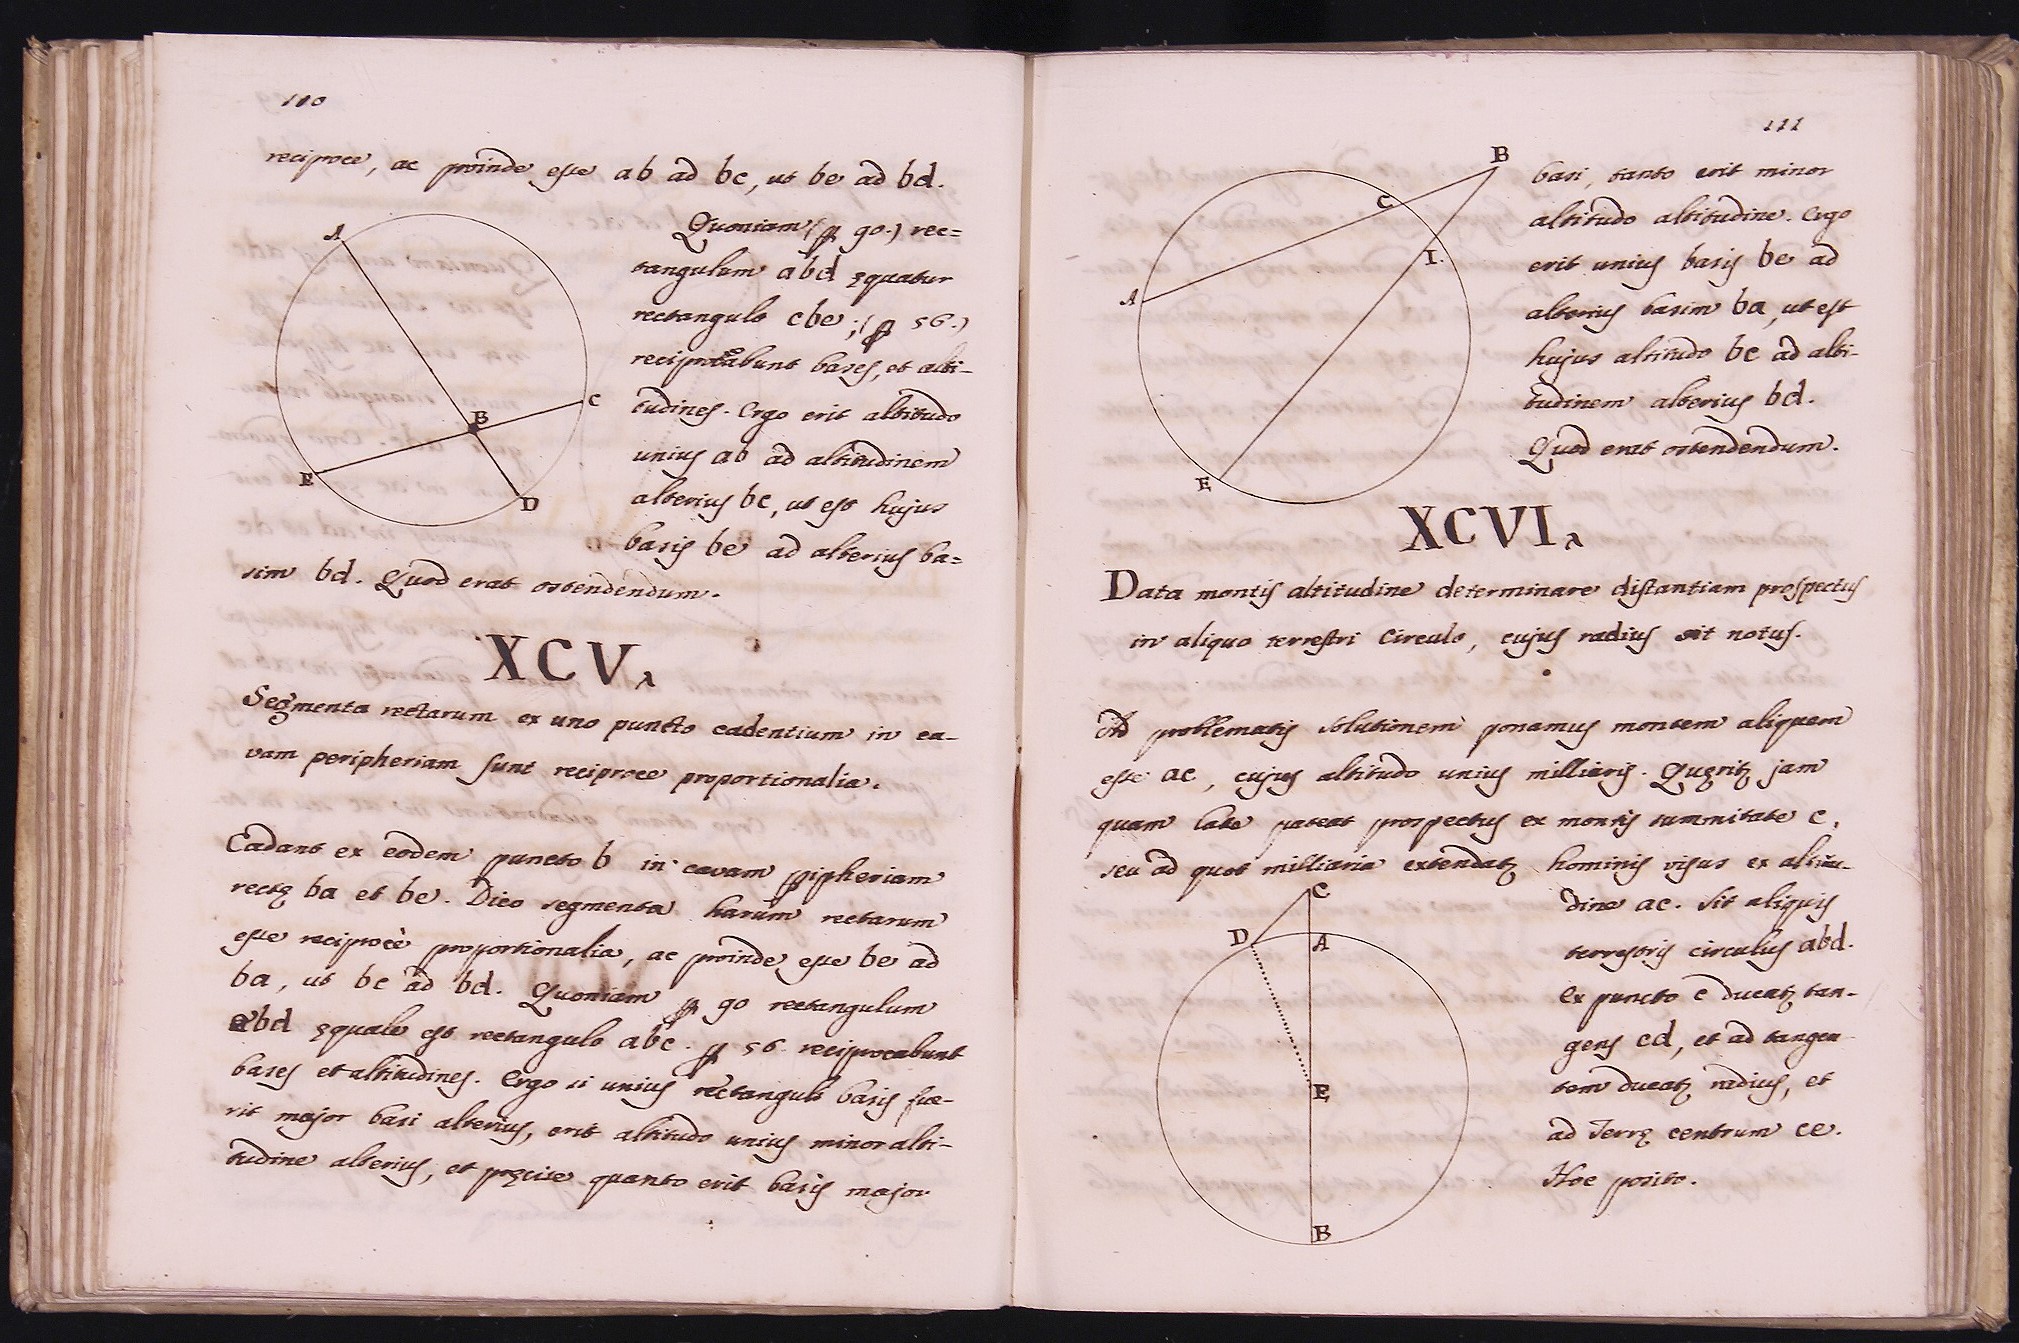 110
reciproce, ac proinde esse ab ad bc, ut be ad bd.
Quoniam (ꝑ 90.) rec=
tangulum abd ęquatur
rectangulo cbe; (ꝑ 56.)
reciprocabunt bases, et alti-
tudines. Ergo erit altitudo
unius ab ad altitudinem
alterius bc, ut est hujus
basis be ad alterius ba=
sim bd. Quod erat ostendendum.
A
B
C
E
D
XCV.
Segmenta rectarum ex uno puncto cadentium in ca-
vam peripheriam sunt reciproce proportionalia.
Cadant ex eodem puncto b in cavam ꝑipheriam
rectę ba et be. Dico segmenta harum rectarum
esse reciprocè proportionalia, ac proinde esse be ad
ba, ut bc ad bd. Quoniam ꝑ 90 rectangulum
ebd ęquale est rectangulo abc. ꝑ 56. reciprocabunt
bases et altitudines. Ergo si unius rectanguli basis fue-
rit major basi alterius, erit altitudo unius minor alti-
tudine alterius, et pręcise quanto erit basis major
111
B
C
I.
A
E
basi, tanto erit minor
altitudo altitudine. Ergo
erit unius basis be ad
alterius basim ba, ut est
hujus altitudo bc ad alti-
tudinem alterius bd.
Quod erat ostendendum.
XCVI.
Data montis altitudine determinare distantiam prospectus
in aliquo terrestri Circulo, cujus radius sit notus.
Ad problematis solutionem ponamus montem aliquem
esse ac, cujus altitudo unius milliaris. Quęritꝫ jam
quam late pateat prospectus ex montis summitate c,
seu ad quot milliaria extendatꝫ hominis visus ex altitu-
dine ac. Sit aliquis
terrestris circulus abd.
Ex puncto c ducatꝫ tan-
gens cd, et ad tangen
tem ducatꝫ radius, et
ad Terrę centrum ce.
Hoc posito.
C
D
A
E
B